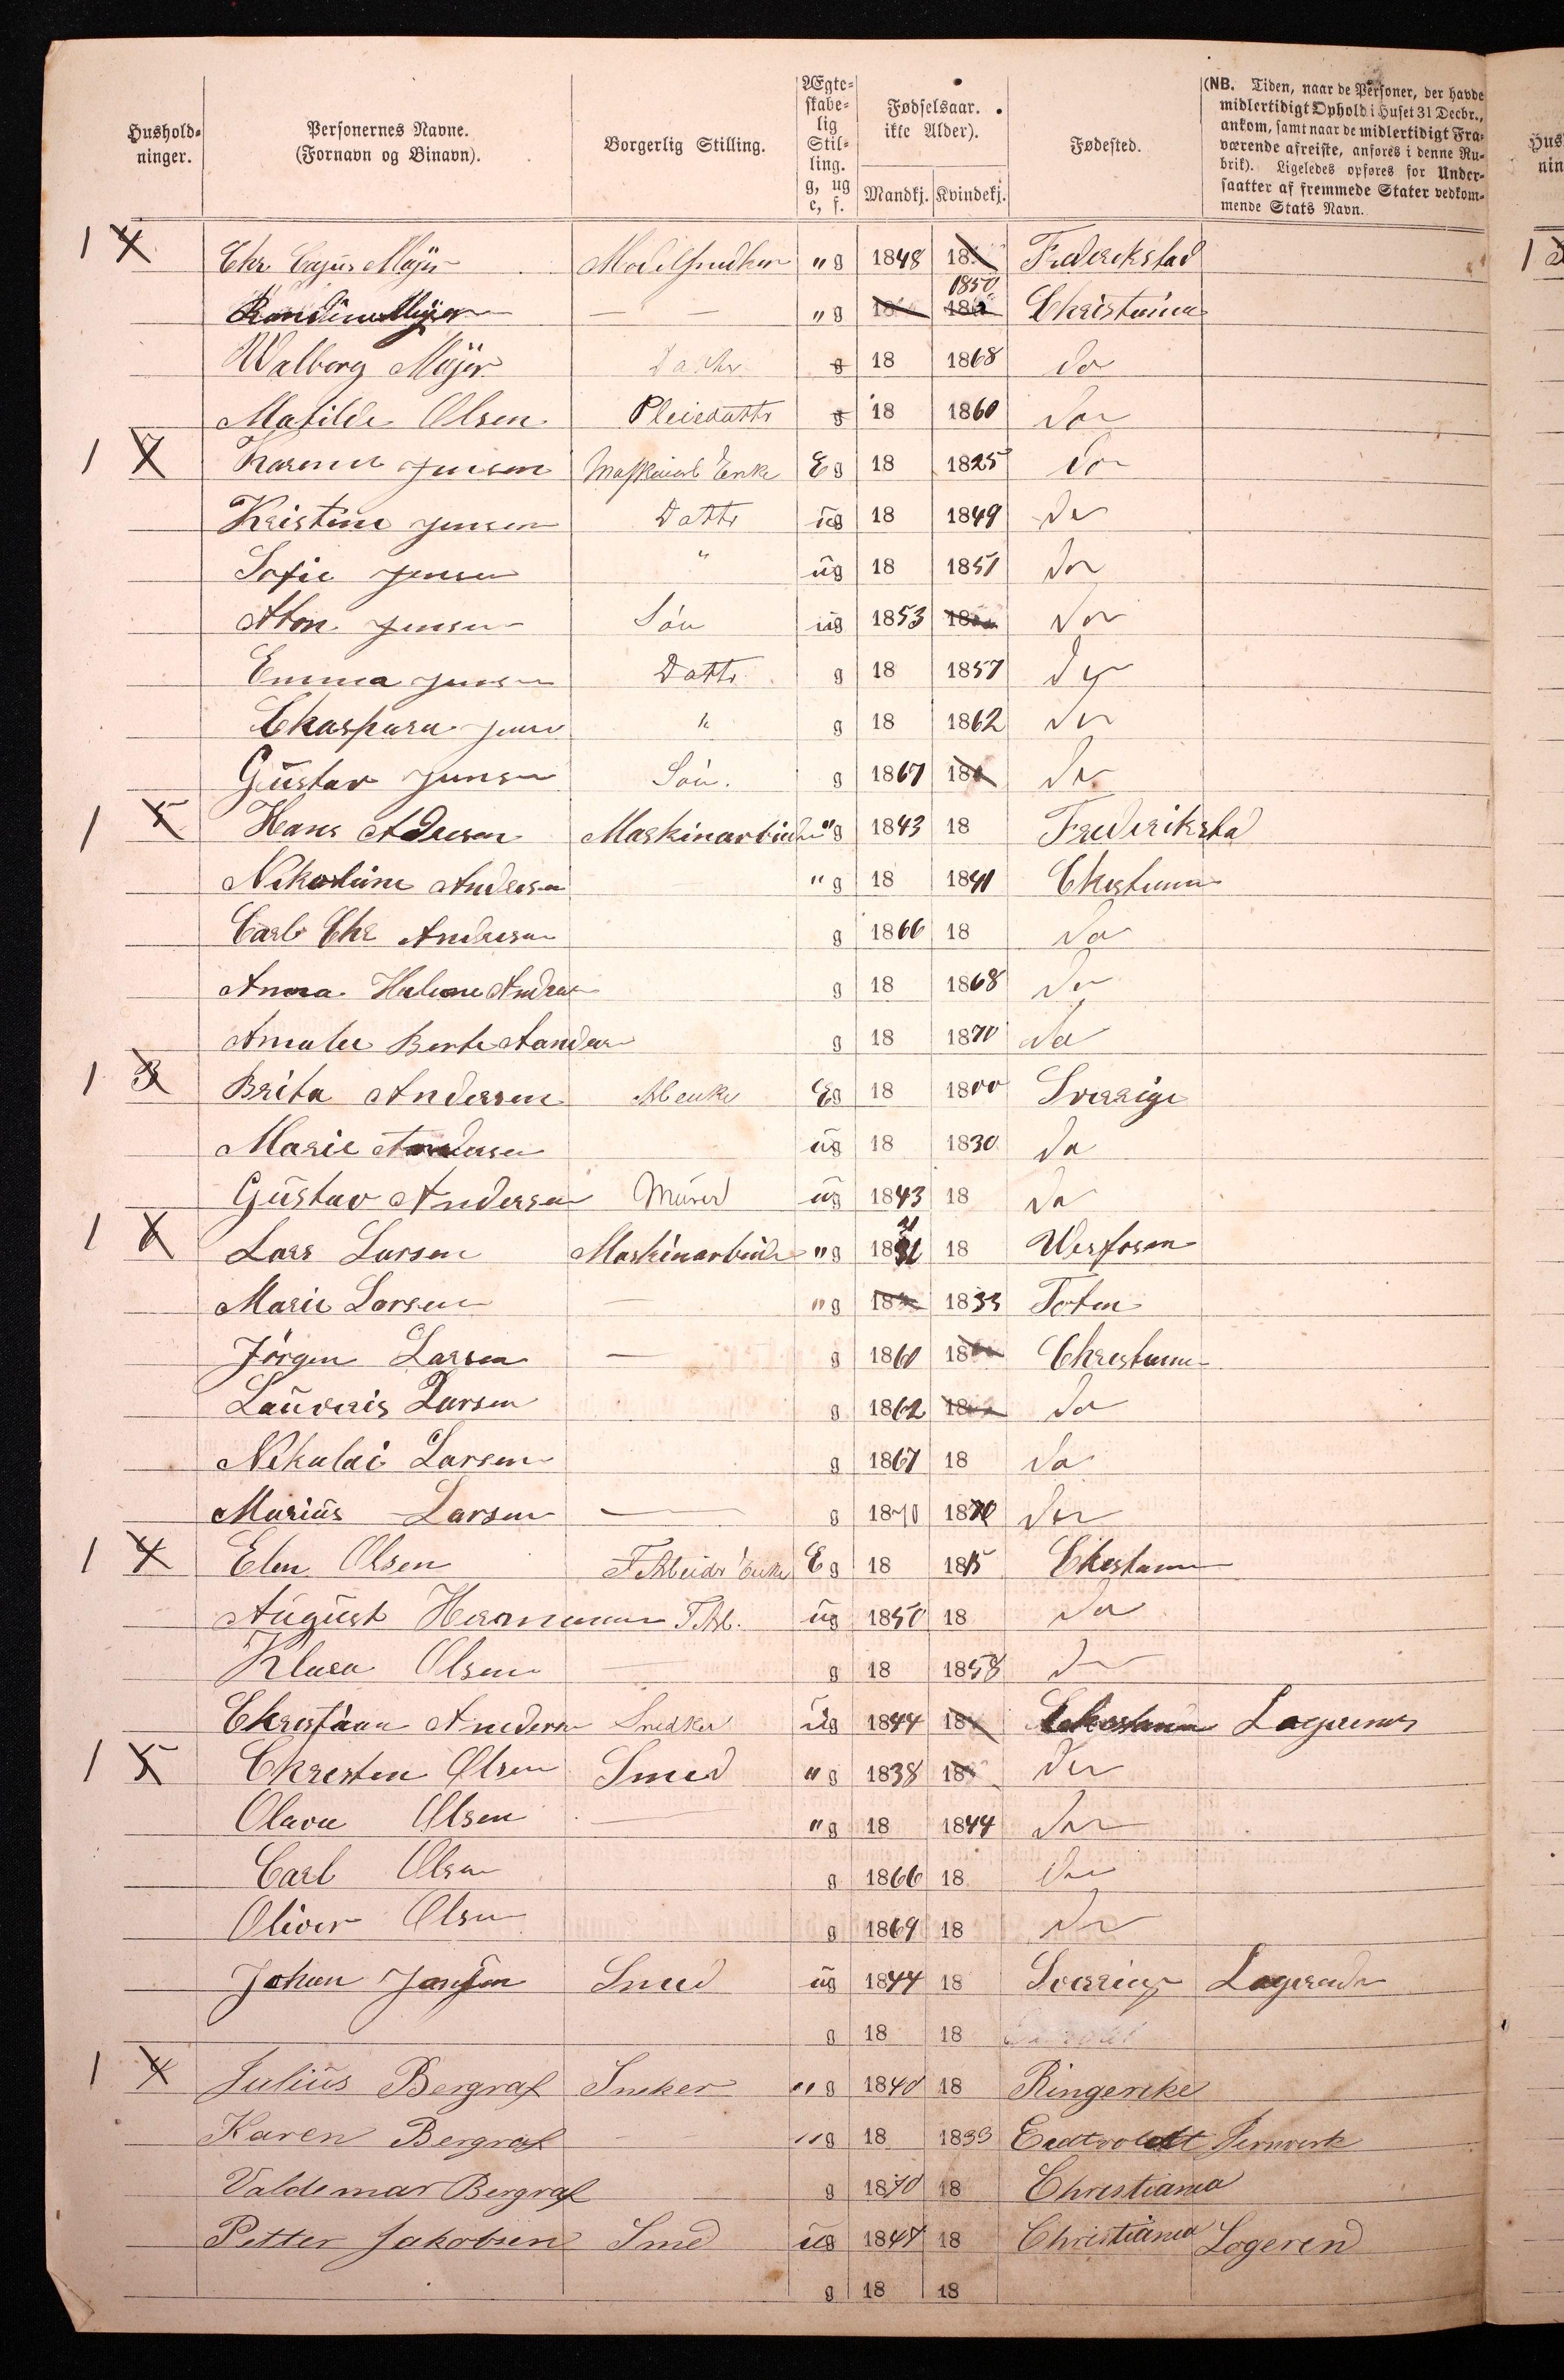 Hushold-
ninger.
Personernes Navne.
(Fornavn og Binavn).
Borgerlig Stilling.
Ægte-
skabe-
lig
Stil-
ling.
g, ug
e, f.
Fødselsaar.
ikke Alder).
Mandkj. Kvindekj.
Fødested.
(NB. Tiden, naar de Personer, der havde
midlertidigt Ophold i Huset 31 Decbr.,
ankom, samt naar de midlertidigt Fra-
værende afreiste, anføres i denne Ru-
brik). Ligeledes opføres for Under-
saatter af fremmede Stater vedkom-
mende Stats Navn.
1 4 Chr Cajus Møjer " g 1848 18 Frederekstad
Møjer — — " g 18 1850 Christania
Walborg Møjer Datter g 18 1868 do
Matilde Olsen Pleiedattr g 18 1860 do
1 7 Jensen Enke E g 18 1825 do
Kristine Jensen Dattr ug 18 1849 do
Sofie Jensen " ug 18 1851 do
Jensen Sön ug 1853 18 do
Emma Jensen Dattr g 18 1857 do
Jens " g 18 1862 do
Gustav Jensen Sön. g 1867 18 do
1 5 Hans Adresen Maskinarbeider " g 1843 18 Frederikstad
Nikoline Andresen " g 18 1841 Christiania
Carl Chr Andresen g 1866 18 do
Anna Helene Andres g 18 1868 do
Amalie Berte Aandres g 18 1870 do
1 3 Brita Andersen Abenke E g 18 1800 Sverrige
Marie Andersen ug 18 1830 do
Gustav Andersen Murer ug 1843 18 do
1 6 Lars Larsen Maskinarbeider " g 18 18 Wesfosen
Marie Larsen — " g 18 1833 Toten
Jörgen Larsen — g 1860 18 Christiania
Larsen g 1862 18 do
Nikolai Larsen g 1867 18 do
Marius Larsen — g 1870 1870 do
1 4 Elen Olsen F Arbeidr Enke E g 18 1815 Christiania
August Hermansen F Arb. ug 1850 18 do
Klara Olsen — g 18 1858 do
Christian Andersen Snedker ug 1844 18 Christiania Logerende
1 5 Christen Olsen Smed " g 1838 18 do
Olava Olsen — " g 18 1844 do
Carl Olsen g 1866 18 do
Oliver Olsen g 1869 18 do
Johan Jansen Smed ug 1844 18 Sverrige Logerende
g 18 18
1 4 Julius Bergraf Sneker " g 1840 18 Ringerike
Karen Bergraf — " g 18 1833 Eedtvoldt Jernverk
Valdemar Bergraf g 1870 18 Christiania
Petter Jakobsen Smed ug 1847 18 Christiania Logerend
g 18 18